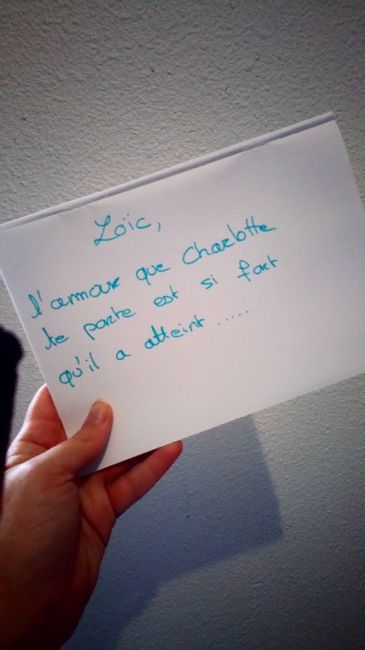 Loïc,
l'amour que Charlotte
te porte est si fort
qu'il a atteint .....